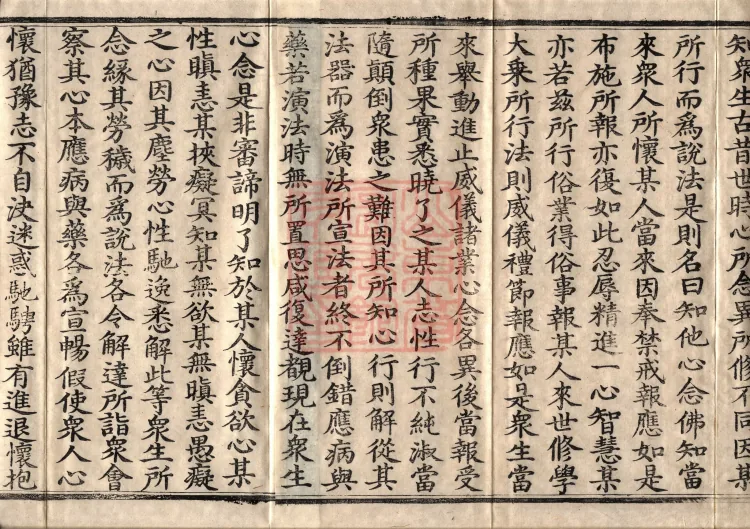 知衆生古昔世時心所念異所修不同因某
所行而爲說法是則名曰知他心念佛知當
來衆人所懷某人當來因奉禁戒報應如是
布施所報亦復如此忍辱精進一心智慧某
亦若茲所行俗業得俗事報某人來世修學
大乗所行法則威儀禮節報應如是衆生當
來舉動進止威儀諸業心念各異後當報受
所種果實悉曉了之某人志性行不純淑當
隨顛倒衆患之難因其所知心行則解從其
法器而爲演法所宣法者終不倒錯應病與
藥若演法時無所置思咸復達覩現在衆生
心念是非審諦明了知於某人懷貪欲心某
性瞋恚某挾癡冥知某無欲某無瞋恚愚癡
之心因其塵勞心性馳逸悉解此等衆生所
念緣其勞穢而爲說法各令解達所詣衆會
察其心本應病與藥各爲宣暢假使衆人心
懷猶豫志不自決迷惑馳騁雖有進退懷抱